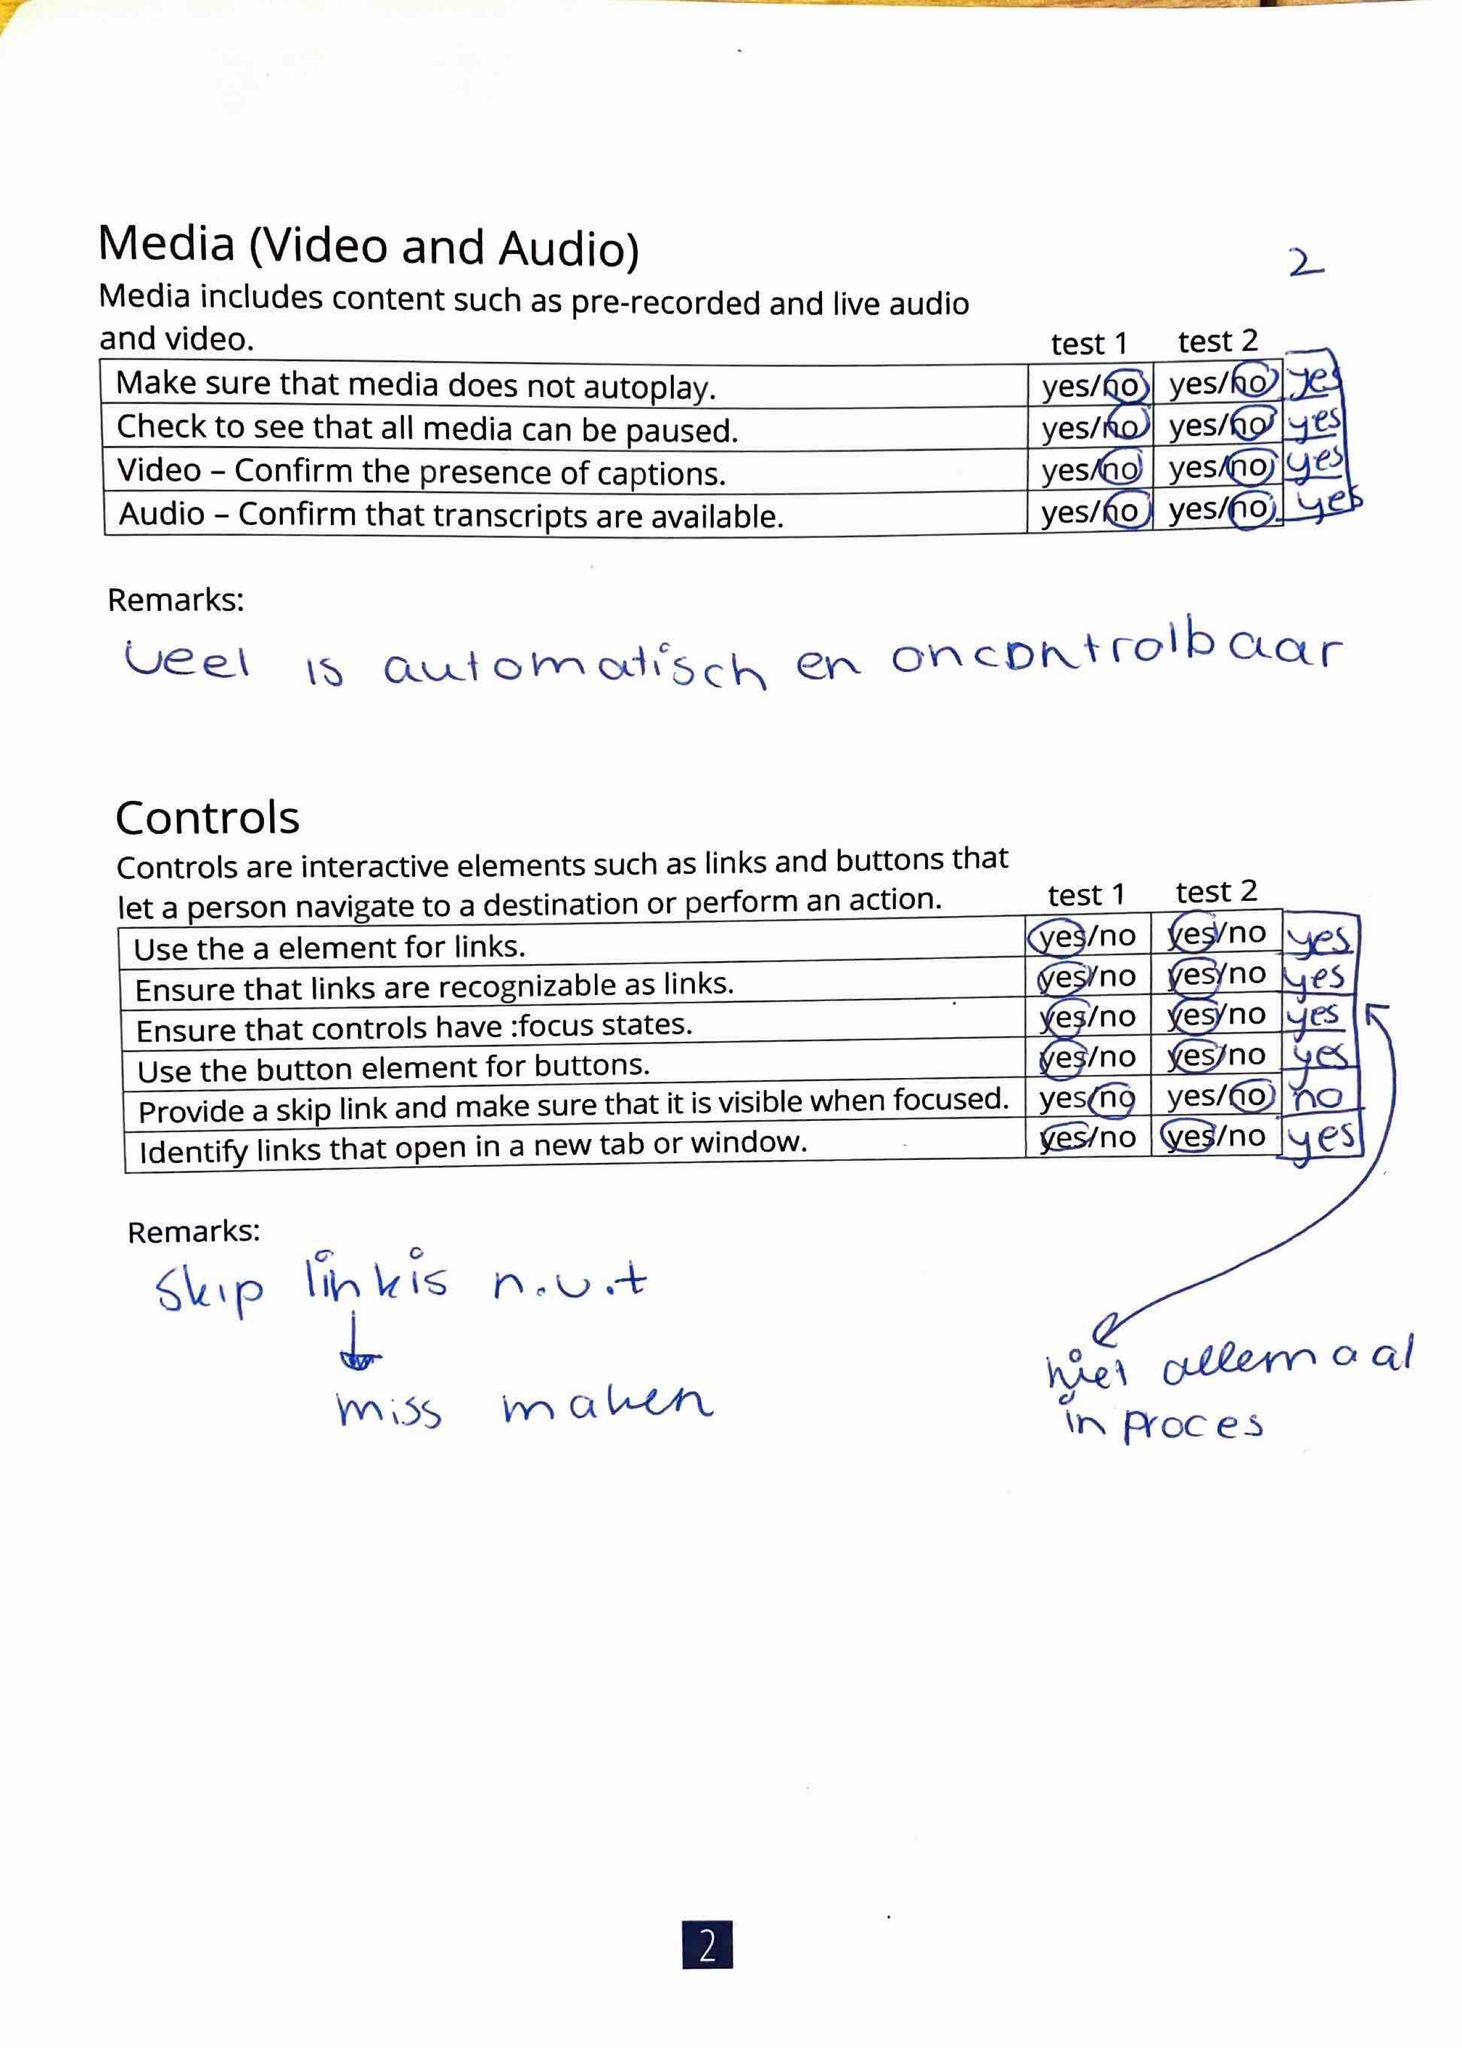 2
Media (Video and Audio)
Media includes content such as pre-recorded and live audio
and video. test 1 test 2
Make sure that media does not autoplay. yes/no yes/no yes
Check to see that all media can be paused. yes/no yes/no yes
Video – Confirm the presence of captions. yes/no yes/no yes
Audio – Confirm that transcripts are available. yes/no yes/no yes
Remarks:
veel is automatisch en oncontrolbaar
Controls
Controls are interactive elements such as links and buttons that
let a person navigate to a destination or perform an action. test 1 test 2
Use the a element for links. yes/no yes/no yes
Ensure that links are recognizable as links. yes/no yes/no yes
Ensure that controls have :focus states. yes/no yes/no yes
Use the button element for buttons. yes/no yes/no yes
Provide a skip link and make sure that it is visible when focused. yes/no yes/no no
Identify links that open in a new tab or window. yes/no yes/no yes
Remarks:
Skip link is n.v.t
miss maken
niet allemaal
in proces
2